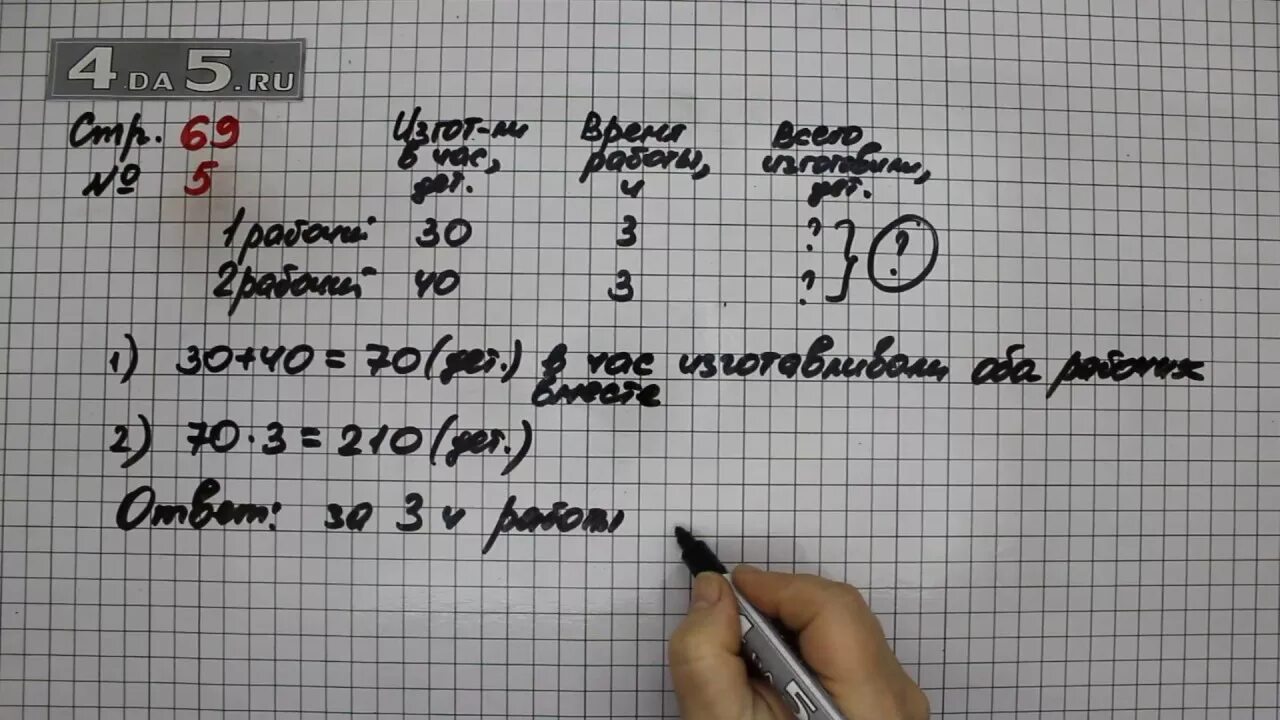 4.DA5.RU
Стр. 69
№ 5
Изгот-ли в час, дет.
Время работы, ч
Всего изготовили, дет.
1 рабочий 30 3 ? } ?
2 рабочий 40 3 ?
1) 30+40=70(дет.) в час изготавливали оба рабочих
вместе
2) 70·3=210(дет.)
Ответ: за 3 ч работы
5